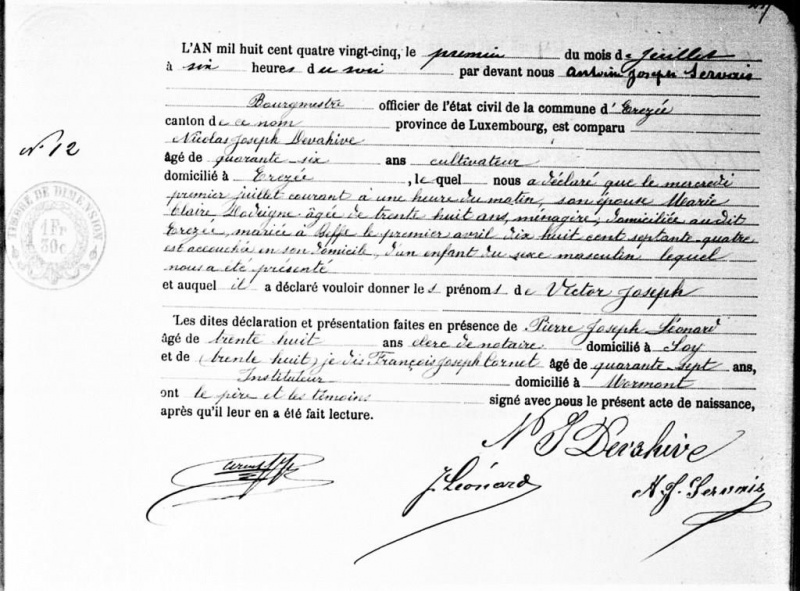 L'AN mil huit cent quatre vingt-cinq, le premier du mois de Juillet
à six heures du soir par devant nous Antoine Joseph Servais
Bourgmestre officier de l'état civil de la commune d'Erezée
canton de ce nom province de Luxembourg, est comparu
Nicolas Joseph Devahive
âgé de quarante six ans cultivateur
domicilié à Erezée, lequel nous a déclaré que le mercredi
N° 12
premier juillet courant à une heure du matin, son épouse Marie
Claire, âgée de trente huit ans, ménagère, domiciliée audit
Erezée, mariée à Beffe le premier avril dix huit cent septante quatre
est accouchée en son domicile, d'un enfant du sexe masculin lequel
nous a été présenté
et auquel il a déclaré vouloir donner les prénoms de Victor Joseph
Les dites déclaration et présentation faites en présence de Pierre Joseph Léonard
âgé de trente huit ans clerc de notaire domicilié à Soy
et de (trente huit) je dis François Joseph Cornet âgé de quarante sept ans,
Instituteur domicilié à Mormont
ont le père et les témoins signé avec nous le présent acte de naissance,
après qu'il leur en a été fait lecture.
TIMBRE DE DIMENSION
1 Fr
30c
N J Devahive
J. Léonard
A. J. Servais